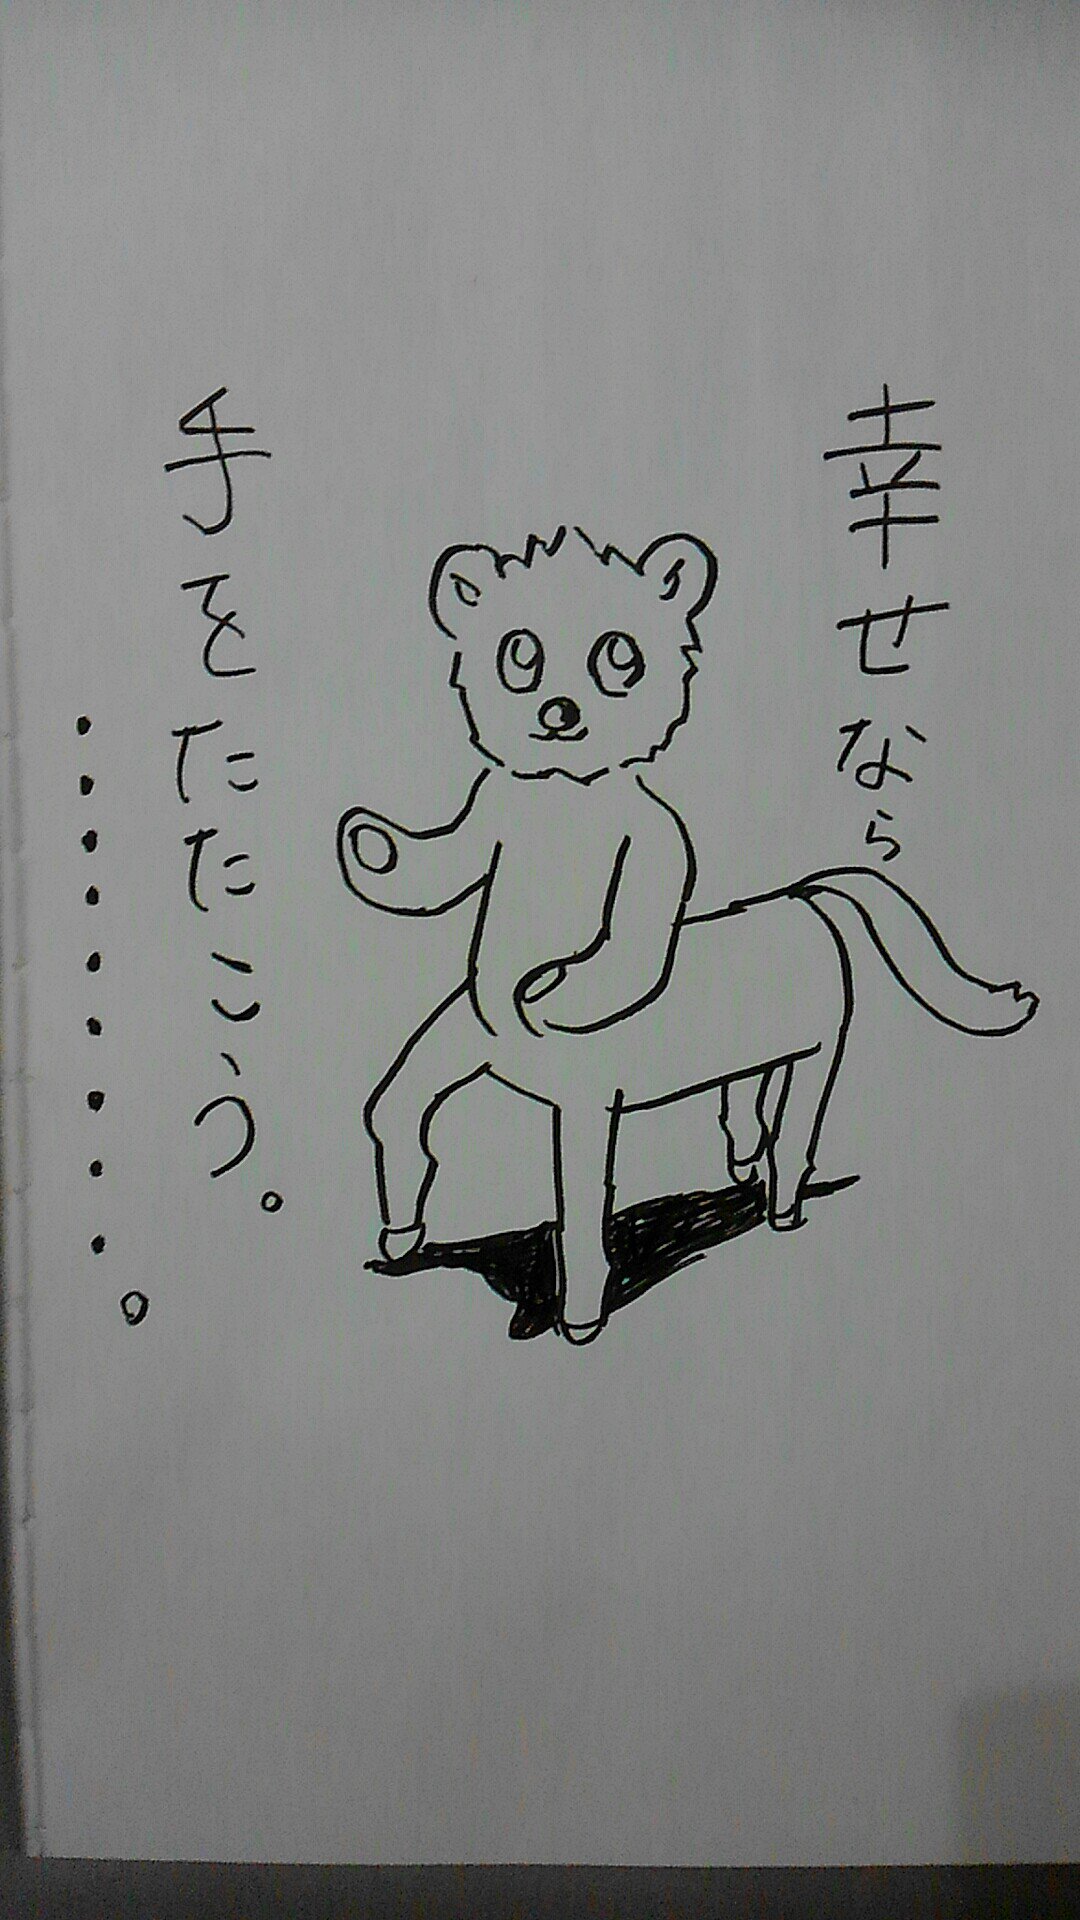 幸せなら
手をたたこう。
・・・・・・・・・。